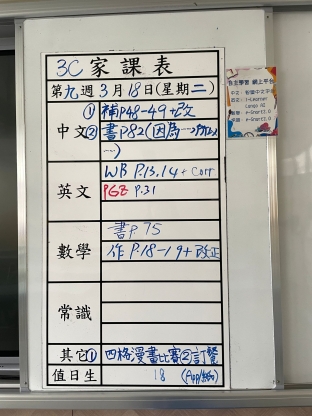 3C 家課表
第九週 3月18日(星期二)
中文
① 補P48-49+改
② 書P82(因為…所以
…)
英文
WB P.13,14 + Corr
PGZ P.31
數學
書p.75
作 P.18-19+改正
常識
其它
① 四格漫畫比賽 ② 訂餐
值日生
18 (App繳)
自主學習 網上平台